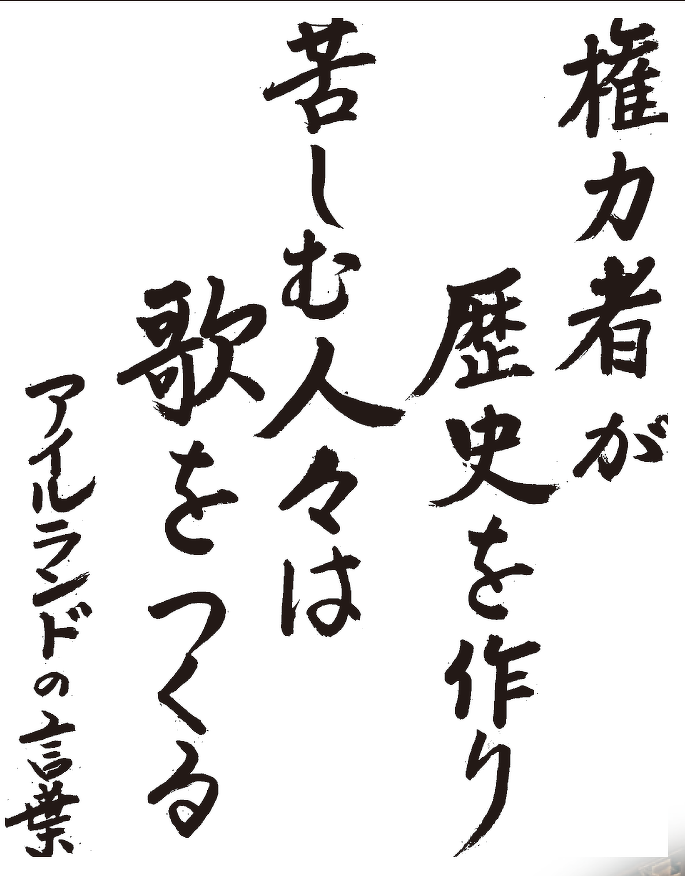 権力者が
歴史を作り
苦しむ人々は
歌をつくる
アイルランドの言葉